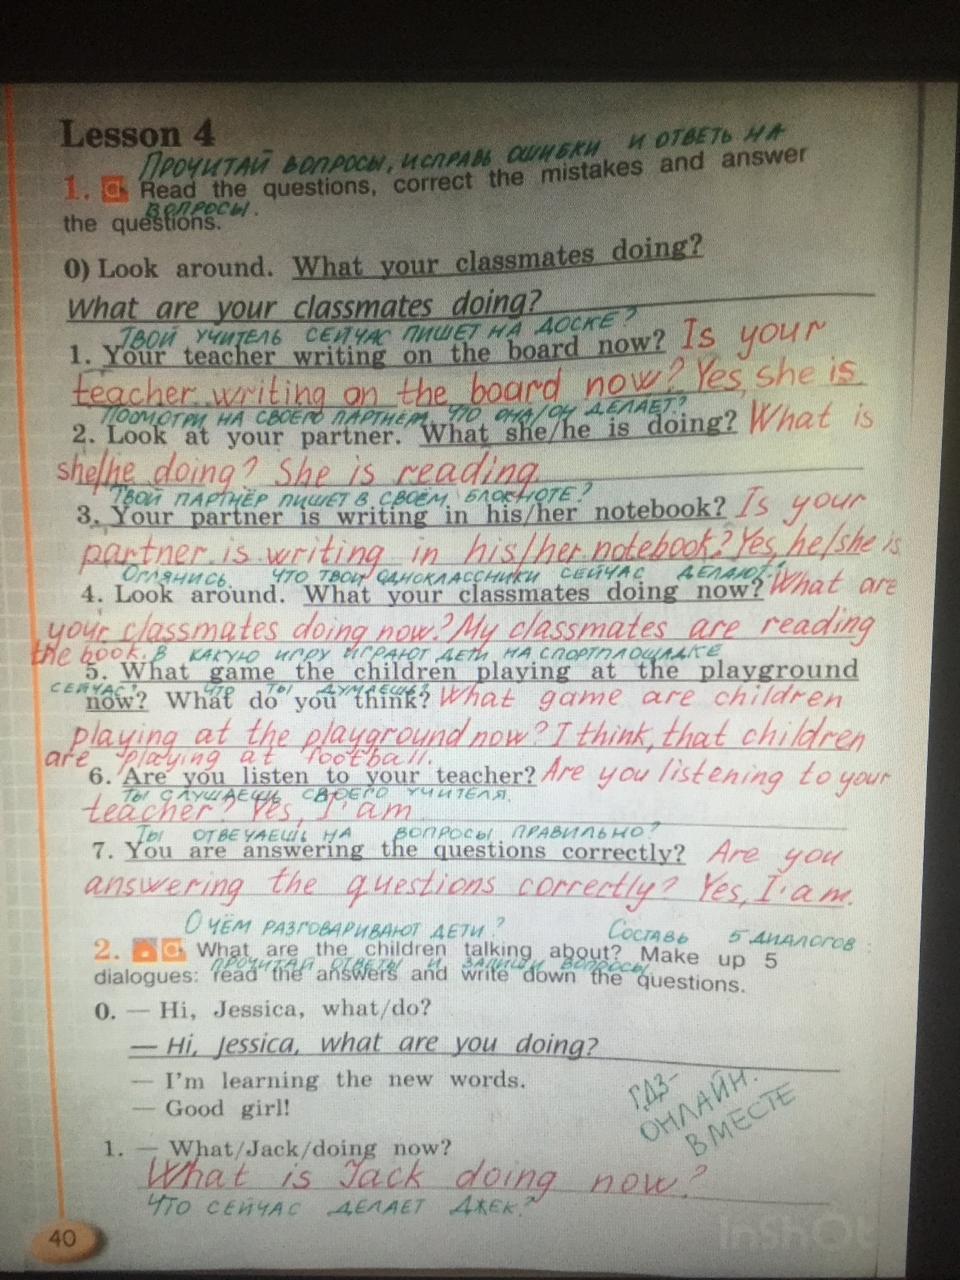 Lesson 4
ПРОЧИТАЙ ВОПРОСЫ, ИСПРАВЬ ОШИБКИ И ОТВЕТЬ НА
1. Read the questions, correct the mistakes and answer
ВОПРОСЫ.
the questions.
0) Look around. What your classmates doing?
What are your classmates doing?
ТВОЙ УЧИТЕЛЬ СЕЙЧАС ПИШЕТ НА ДОСКЕ?
1. Your teacher writing on the board now? Is your
teacher writing on the board now? Yes, she is
ПОСМОТРИ НА СВОЕГО ПАРТНЁРА, ЧТО ОНА/ОН ДЕЛАЕТ?
2. Look at your partner. What she/he is doing? What is
she/he doing? She is reading
ТВОЙ ПАРТНЁР ПИШЕТ В СВОЁМ БЛОКНОТЕ?
3. Your partner is writing in his/her notebook? Is your
partner is writing in his/her notebook? Yes, he/she is
ОГЛЯНИСЬ. ЧТО ТВОИ ОДНОКЛАССНИКИ СЕЙЧАС ДЕЛАЮТ?
4. Look around. What your classmates doing now? What are
your classmates doing now? My classmates are reading
the book. В КАКУЮ ИГРУ ИГРАЮТ ДЕТИ НА СПОРТПЛОЩАДКЕ
5. What game the children playing at the playground
СЕЙЧАС? ЧТО ТЫ ДУМАЕШЬ?
now? What do you think? What game are children
playing at the playground now? I think, that children
are playing at football.
6. Are you listen to your teacher? Are you listening to your
ТЫ СЛУШАЕШЬ СВОЕГО УЧИТЕЛЯ.
teacher? Yes, I am
ТЫ ОТВЕЧАЕШЬ НА ВОПРОСЫ ПРАВИЛЬНО?
7. You are answering the questions correctly? Are you
answering the questions correctly? Yes, I'am.
О ЧЁМ РАЗГОВАРИВАЮТ ДЕТИ? СОСТАВЬ 5 ДИАЛОГОВ:
2. What are the children talking about? Make up 5
ПРОЧИТАЙ ОТВЕТЫ И ЗАПИШИ ВОПРОСЫ
dialogues: read the answers and write down the questions.
0. — Hi, Jessica, what/do?
— Hi, Jessica, what are you doing?
— I'm learning the new words.
— Good girl!
ГДЗ-
ОНЛАЙН.
ВМЕСТЕ
1. — What/Jack/doing now?
What is Jack doing now?
ЧТО СЕЙЧАС ДЕЛАЕТ ДЖЕК?
40
InShOt